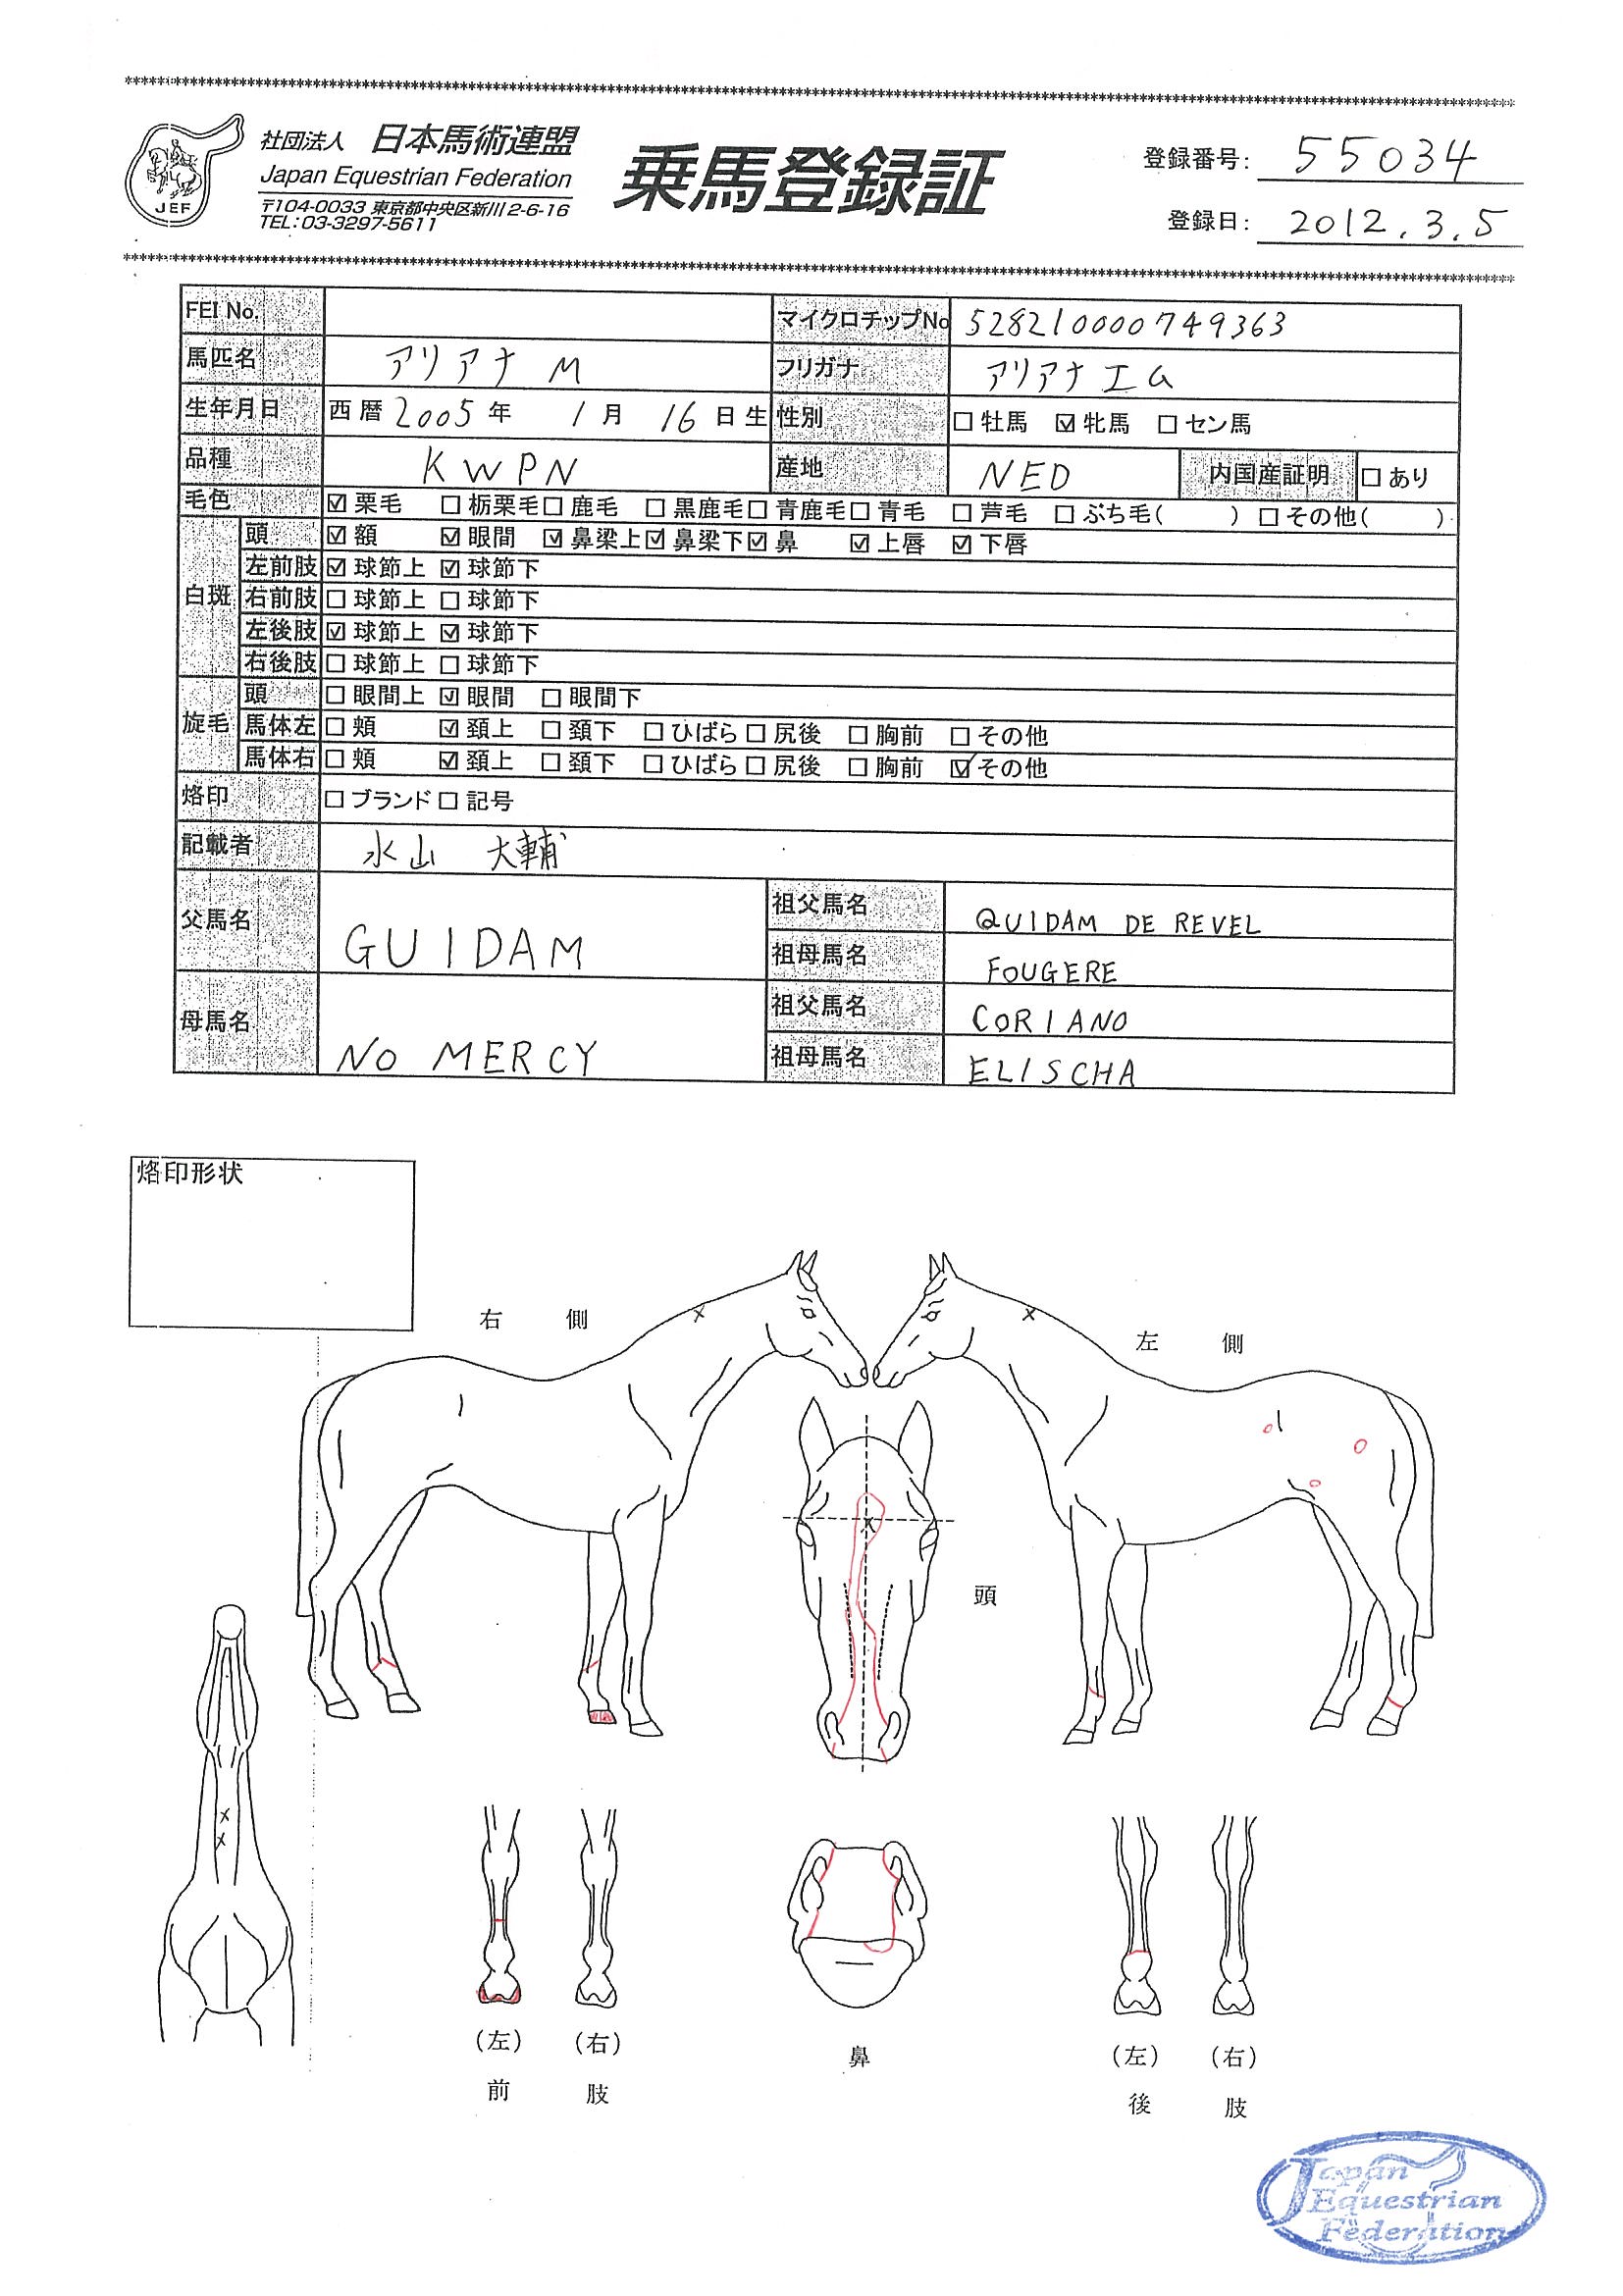 社団法人 日本馬術連盟
Japan Equestrian Federation
〒104-0033 東京都中央区新川2-6-16
TEL:03-3297-5611
JEF
乗馬登録証
登録番号: 55034
登録日: 2012.3.5
FEI No. マイクロチップNo 528210000749363
馬匹名 アリアナ M フリガナ アリアナエム
生年月日 西暦 2005 年 1 月 16 日生 性別 □牡馬 ☑牝馬 □セン馬
品種 KWPN 産地 NED 内国産証明 □あり
毛色 ☑栗毛 □栃栗毛 □鹿毛 □黒鹿毛 □青鹿毛 □青毛 □芦毛 □ぶち毛( ) □その他( )
白斑 頭 ☑額 ☑眼間 ☑鼻梁上 ☑鼻梁下 ☑鼻 ☑上唇 ☑下唇
左前肢 ☑球節上 ☑球節下
右前肢 □球節上 □球節下
左後肢 ☑球節上 ☑球節下
右後肢 □球節上 □球節下
旋毛 頭 □眼間上 ☑眼間 □眼間下
馬体左 □頬 ☑頚上 □頚下 □ひばら □尻後 □胸前 □その他
馬体右 □頬 ☑頚上 □頚下 □ひばら □尻後 □胸前 ☑その他
烙印 □ブランド □記号
記載者 水山 大輔
父馬名 GUIDAM 祖父馬名 QUIDAM DE REVEL
祖母馬名 FOUGERE
母馬名 NO MERCY 祖父馬名 CORIANO
祖母馬名 ELISCHA
烙印形状
右側
左側
頭
(左) (右)
前肢
鼻
(左) (右)
後肢
Japan
Equestrian
Federation